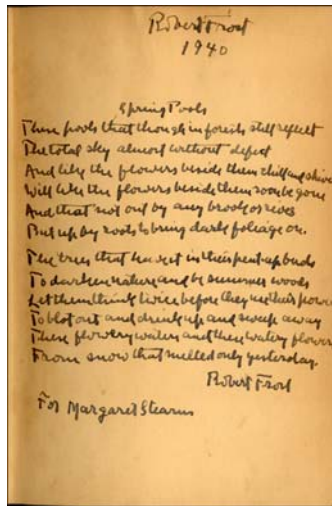 Robert Frost
1940
Spring Pools
These pools that though in forests still reflect
The total sky almost without defect
And like the flowers beside them chill and shiver
Will like the flowers beside them soon be gone
And that not out by any brook or river
But up by roots to bring dark foliage on.
The trees that have it in their pent-up buds
To darken nature and be summer woods
Let them think twice before they use their powers
To blot out and drink up and sweep away
These flowery waters and these watery flowers
From snow that melted only yesterday.
Robert Frost
For Margaret Stearns